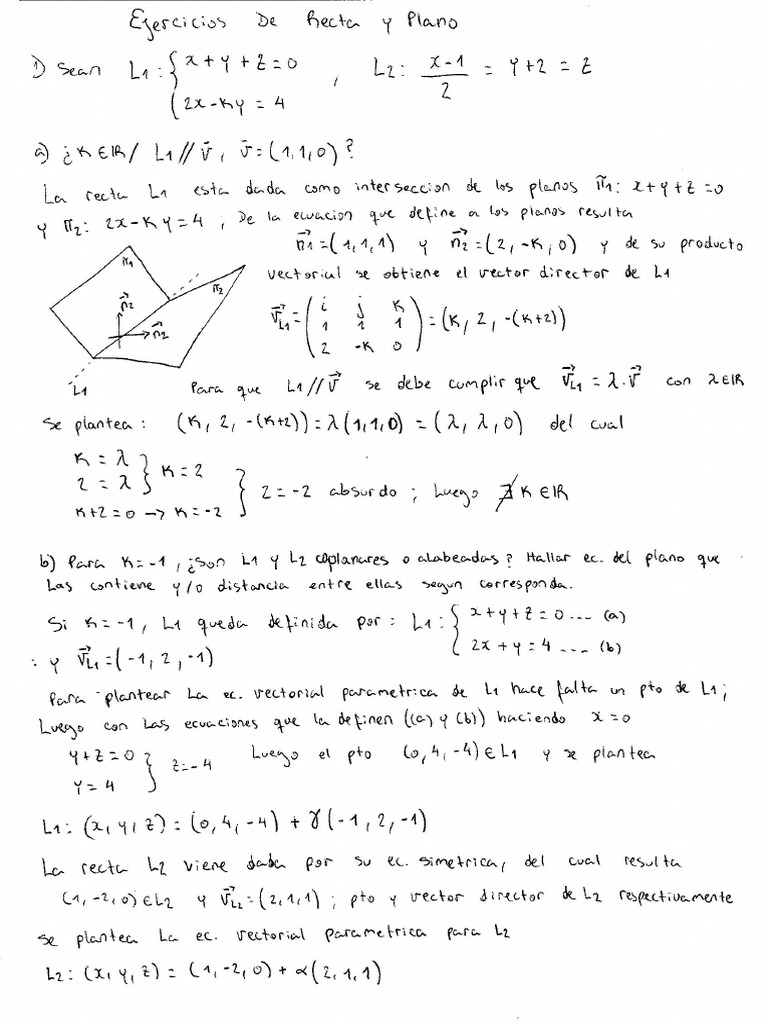 Ejercicios De Recta y Plano
1) Sean L1: { x+y+z=0 , L2: x-1/2 = y+2 = z
2x-Ky=4
a) ¿K∈IR/ L1 // v⃗, v⃗=(1,1,0)?
La recta L1 esta dada como interseccion de los planos π1: x+y+z=0
y π2: 2x-Ky=4, De la ecuacion que define a los planos resulta
n⃗1=(1,1,1) y n⃗2=(2,-K,0) y de su producto
vectorial se obtiene el vector director de L1
π1
π2
n⃗2
n⃗2
L1
v⃗L1 = ( i j K
1 1 1
2 -K 0 ) = (K, 2, -(K+2))
Para que L1//v⃗ se debe cumplir que v⃗L1 = λ.v⃗ con λ∈IR
Se plantea: (K, 2, -(K+2))=λ(1,1,0) = (λ, λ, 0) del cual
K=λ
2=λ } K=2
K+2=0 → K=-2 } 2=-2 absurdo; Luego ∄ K∈IR
b) Para K=-1, ¿son L1 y L2 coplanares o alabeadas? Hallar ec. del plano que
Las contiene y/o distancia entre ellas segun corresponda.
Si K=-1, L1 queda definida por: L1: { x+y+z=0 .... (a)
2x+y=4 .... (b)
: y v⃗L1=(-1,2,-1)
Para plantear La ec. vectorial parametrica de L1 hace falta un pto de L1;
Luego con Las ecuaciones que la definen ((a) y (b)) haciendo x=0
y+z=0
y=4 } z=-4 Luego el pto (0,4,-4)∈L1 y se plantea
L1: (x,y,z)=(0,4,-4)+γ(-1,2,-1)
La recta L2 viene dada por su ec. simetrica, del cual resulta
(1,-2,0)∈L2 y v⃗L2=(2,1,1); pto y vector director de L2 respectivamente
se plantea La ec. vectorial parametrica para L2
L2: (x,y,z) = (1,-2,0)+α(2,1,1)